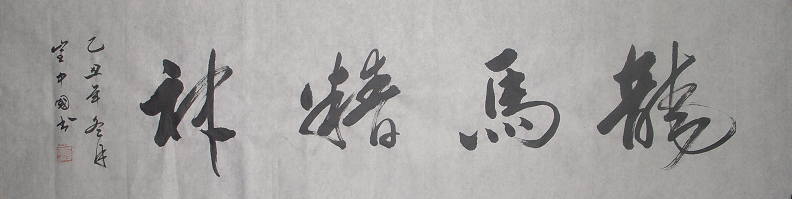 龍馬精神
乙丑年冬月
中國书